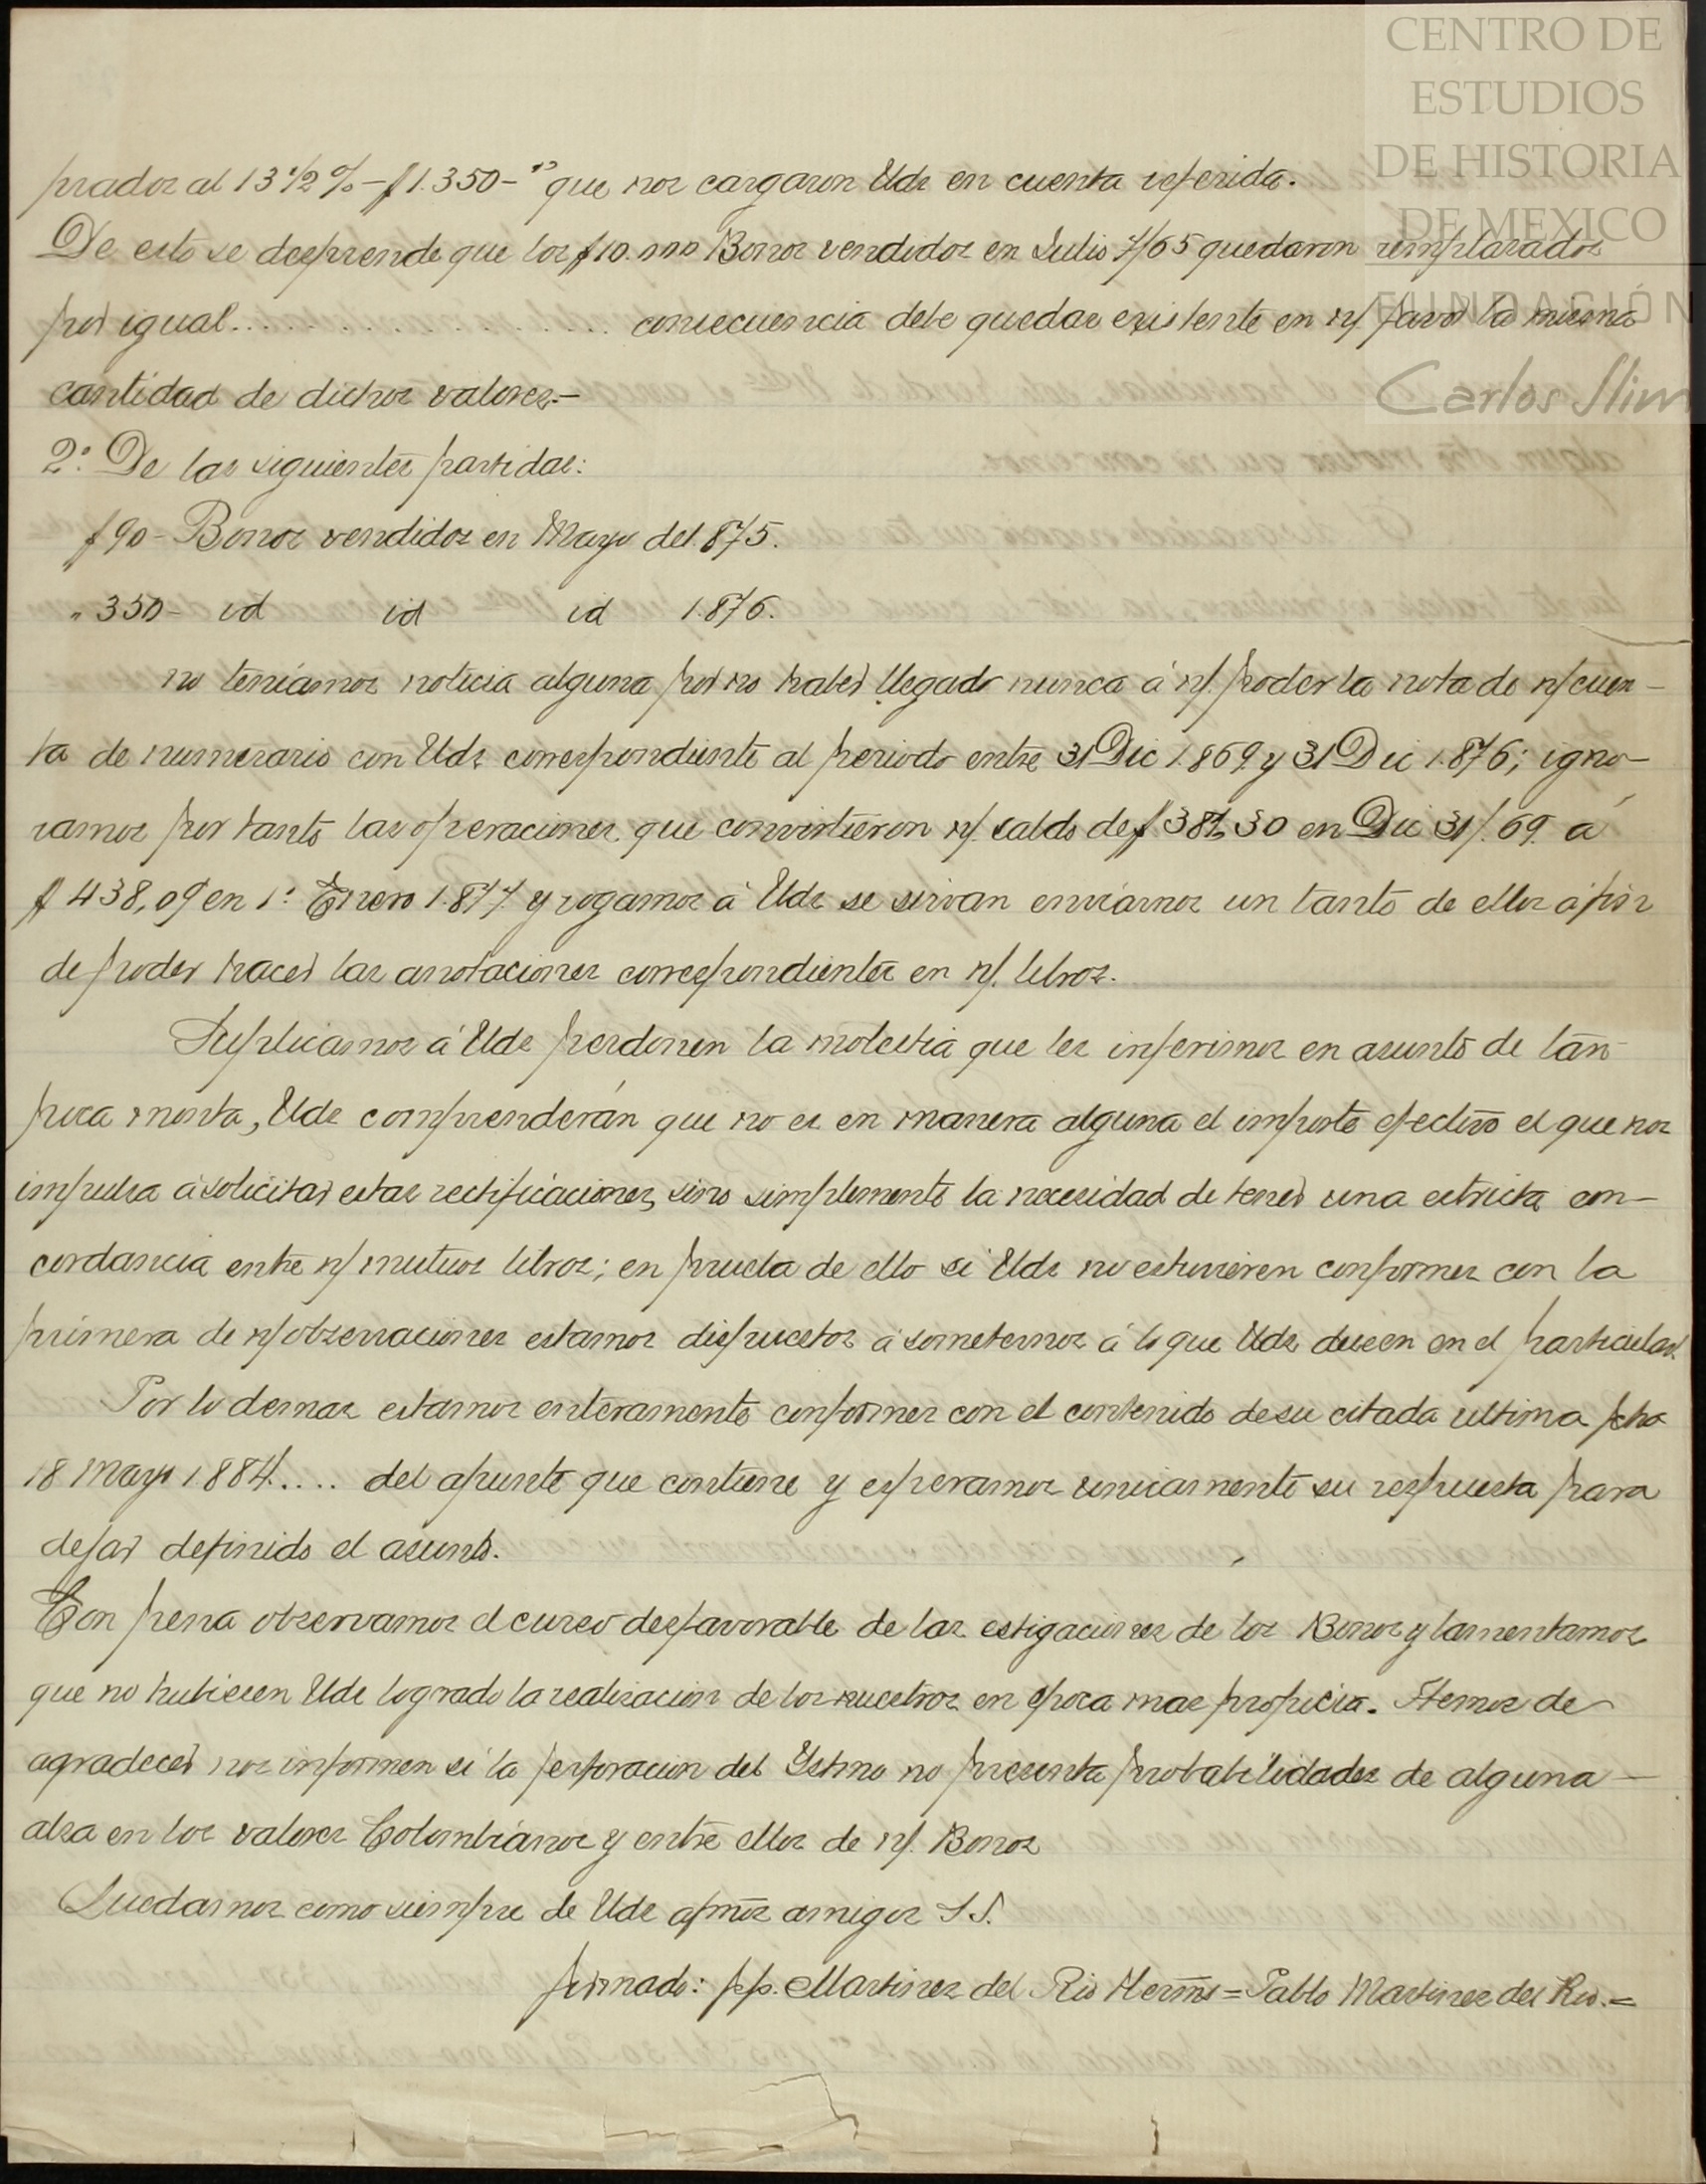 CENTRO DE
ESTUDIOS
DE HISTORIA
DE MEXICO
FUNDACIÓN
Carlos Slim
prados al 13 1/2 % – £ 1.350 – " que nos cargaron Uds en cuenta referida.
De esto se desprende que los £ 10.000 Bonos vendidos en Julio 7/65 quedaron remplazados
por igual.................. consecuencia debe quedar existente en n/ favor la misma
cantidad de dichos valores.–
2º De las siguientes partidas:
£ 90 – Bonos vendidos en Mayo del 1.875.
" 350 – id id id 1.876.
no teniamos noticia alguna por no haber llegado nunca á n/. poder la nota de n/ cuen–
ta de numerario con Uds correspondiente al periodo entre 31 Dic 1.869 y 31 Dic 1.876; igno–
ramos por tanto las operaciones que convirtieron n/. saldo de £ 387,30 en Dic 31/. 69. á
£ 438,09 en 1º Enero 1.877. y rogamos á Uds se sirvan enviarnos un tanto de ellos á fin
de poder hacer las anotaciones correspondientes en n/. libros.
Suplicamos á Uds perdonen la molestia que les inferimos en asunto de tan
poca monta, Uds comprenderán que no es en manera alguna el importe efectivo el que nos
impulsa á solicitar estas rectificaciones, sino simplemente la necesidad de tener una estricta con–
cordancia entre n/ mutuos libros; en prueba de ello si Uds no estuvieren conformes con la
primera de n/ observaciones estamos dispuestos á someternos á lo que Uds deseen en el particular.
Por lo demas estamos enteramente conformes con el contenido de su citada ultima fcha
18 Mayo 1.884..... del apunte que contiene y esperamos unicamente su respuesta para
dejar definido el asunto.
Con pena observamos el curso desfavorable de las cotigaciones de los Bonos y lamentamos
que no hubiesen Uds logrado la realizacion de los nuestros en epoca mas propicia. Hemos de
agradecer nos informen si la perforacion del Ystmo no presenta probabilidades de alguna –
alza en los valores Colombianos y entre ellos de n/. Bonos
Quedamos como siempre de Uds afmos amigos S S.
firmado: p/p. Martinez del Rio Hermns = Pablo Martinez del Rio. =